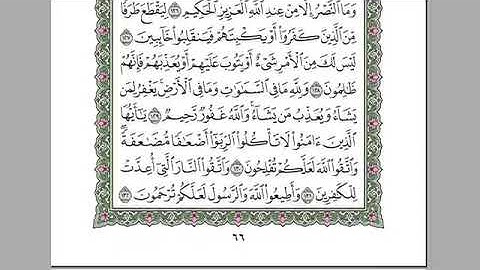 وَمَا ٱلنَّصۡرُ إِلَّا مِنۡ عِندِ ٱللَّهِ ٱلۡعَزِيزِ ٱلۡحَكِيمِ ١٢٦ لِيَقۡطَعَ طَرَفٗا
مِّنَ ٱلَّذِينَ كَفَرُوٓاْ أَوۡ يَكۡبِتَهُمۡ فَيَنقَلِبُواْ خَآئِبِينَ ١٢٧
لَيۡسَ لَكَ مِنَ ٱلۡأَمۡرِ شَيۡءٌ أَوۡ يَتُوبَ عَلَيۡهِمۡ أَوۡ يُعَذِّبَهُمۡ فَإِنَّهُمۡ
ظَٰلِمُونَ ١٢٨ وَلِلَّهِ مَا فِي ٱلسَّمَٰوَٰتِ وَمَا فِي ٱلۡأَرۡضِۚ يَغۡفِرُ لِمَن
يَشَآءُ وَيُعَذِّبُ مَن يَشَآءُۚ وَٱللَّهُ غَفُورٞ رَّحِيمٞ ١٢٩ يَٰٓأَيُّهَا
ٱلَّذِينَ ءَامَنُواْ لَا تَأۡكُلُواْ ٱلرِّبَوٰٓاْ أَضۡعَٰفٗا مُّضَٰعَفَةٗۖ
وَٱتَّقُواْ ٱللَّهَ لَعَلَّكُمۡ تُفۡلِحُونَ ١٣٠ وَٱتَّقُواْ ٱلنَّارَ ٱلَّتِيٓ أُعِدَّتۡ
لِلۡكَٰفِرِينَ ١٣١ وَأَطِيعُواْ ٱللَّهَ وَٱلرَّسُولَ لَعَلَّكُمۡ تُرۡحَمُونَ ١٣٢
٦٦